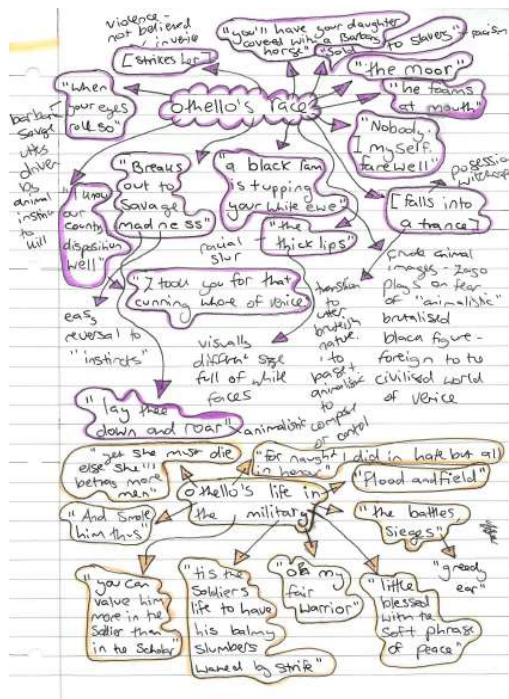 violence -
not believed
in venice
"you'll have your daughter
covered with a Barbary
horse"
"Sold
to slavery"
→ racism
[strikes her]
"the moor"
"When
your eyes
roll so"
othello's race
"he foams
at mouth"
barbaric
savage
utes
driven
by
animal
instinct
to
kill
"Nobody,
I myself.
farewell"
"Breaks
out to
Savage
madness"
"a black ram
is tupping
your white ewe"
possession
witchcraft
[falls into
a trance]
"I know
our
country
disposition
well"
racial
slur
"the
thick lips"
"I took you for that
cunning whore of venice"
easy
reversal to
"instincts"
visually
different size
full of white
faces
transition
to
utter
brutish
nature.
to
animalistic
to
compose
or control
crude animal
images - Iago
plays on fear
of "animalistic"
brutalised
black figure -
foreign to the
civilised world
of venice
"lay thee
down and roar"
animalistic
"yet she must die
else she'll
betray more
men"
"for naught I did in hate but all
in honor"
othello's life in
the military
"flood and field"
"And Smote
him thus"
"the battles
Sieges"
"greedy
ear"
"you can
value him
more in the
Soldier than
in the Scholar"
"tis the
Soldiers
life to have
his balmy
slumbers
waked by strife"
"oh my
fair
warrior"
"little
blessed
with the
soft phrase
of peace"